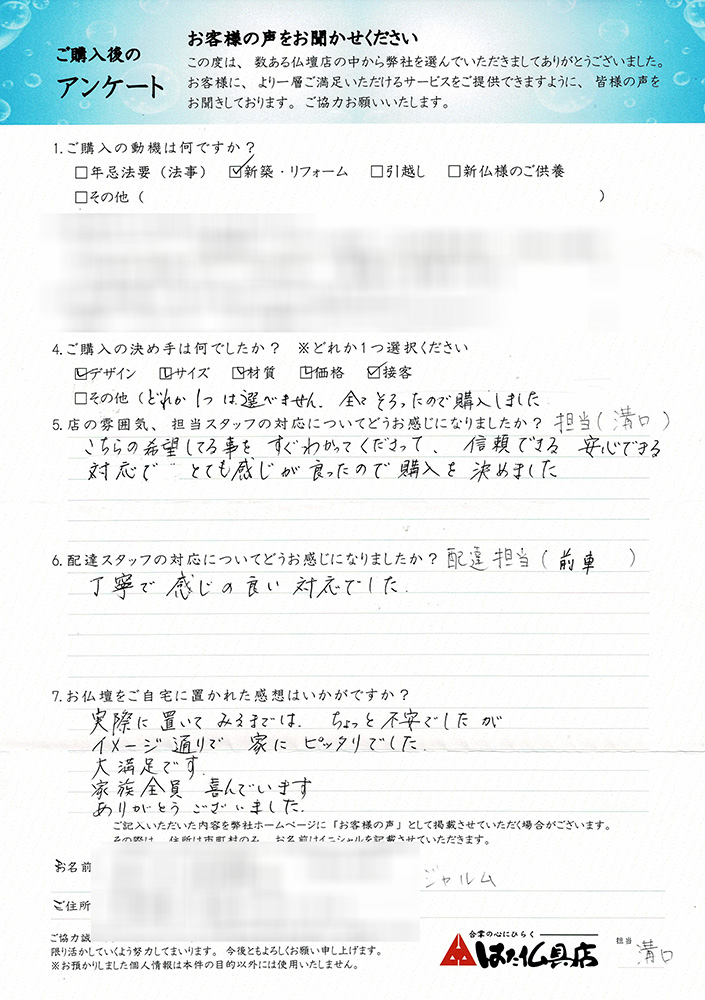 ご購入後の
アンケート
お客様の声をお聞かせください
この度は、数ある仏壇店の中から弊社を選んでいただきましてありがとうございました。
お客様に、より一層ご満足いただけるサービスをご提供できますように、皆様の声を
お聞きしております。ご協力お願いいたします。
1.ご購入の動機は何ですか?
□年忌法要（法事） ☑新築・リフォーム □引越し □新仏様のご供養
□その他（ ）
4.ご購入の決め手は何でしたか? ※どれか1つ選択ください
☑デザイン ☑サイズ ☑材質 ☑価格 ☑接客
□その他（どれか1つは選べません。全てそろったので購入しました
5.店の雰囲気、担当スタッフの対応についてどうお感じになりましたか? 担当(溝口)
こちらの希望してる事をすぐわかってくださって、信頼できる 安心できる
対応で とても感じが良ったので購入を決めました
6.配達スタッフの対応についてどうお感じになりましたか? 配達担当(前車)
丁寧で感じの良い対応でした。
7.お仏壇をご自宅に置かれた感想はいかがですか?
実際に置いてみるまでは、ちょっと不安でしたが
イメージ通りで 家にピッタリでした。
大満足です。
家族全員 喜んでいます
ありがとうございました。
ご記入いただいた内容を弊社ホームページに「お客様の声」として掲載させていただく場合がございます。
その際は、住所は市町村のみ、お名前はイニシャルを記載させていただきます。
お名前
ジャルム
ご住所
ご協力誠
限り活かしていくよう努力してまいります。今後ともよろしくお願い申し上げます。
※お預かりしました個人情報は本件の目的以外には使用いたしません。
合掌の心にひらく
はた仏具店
担当
溝口